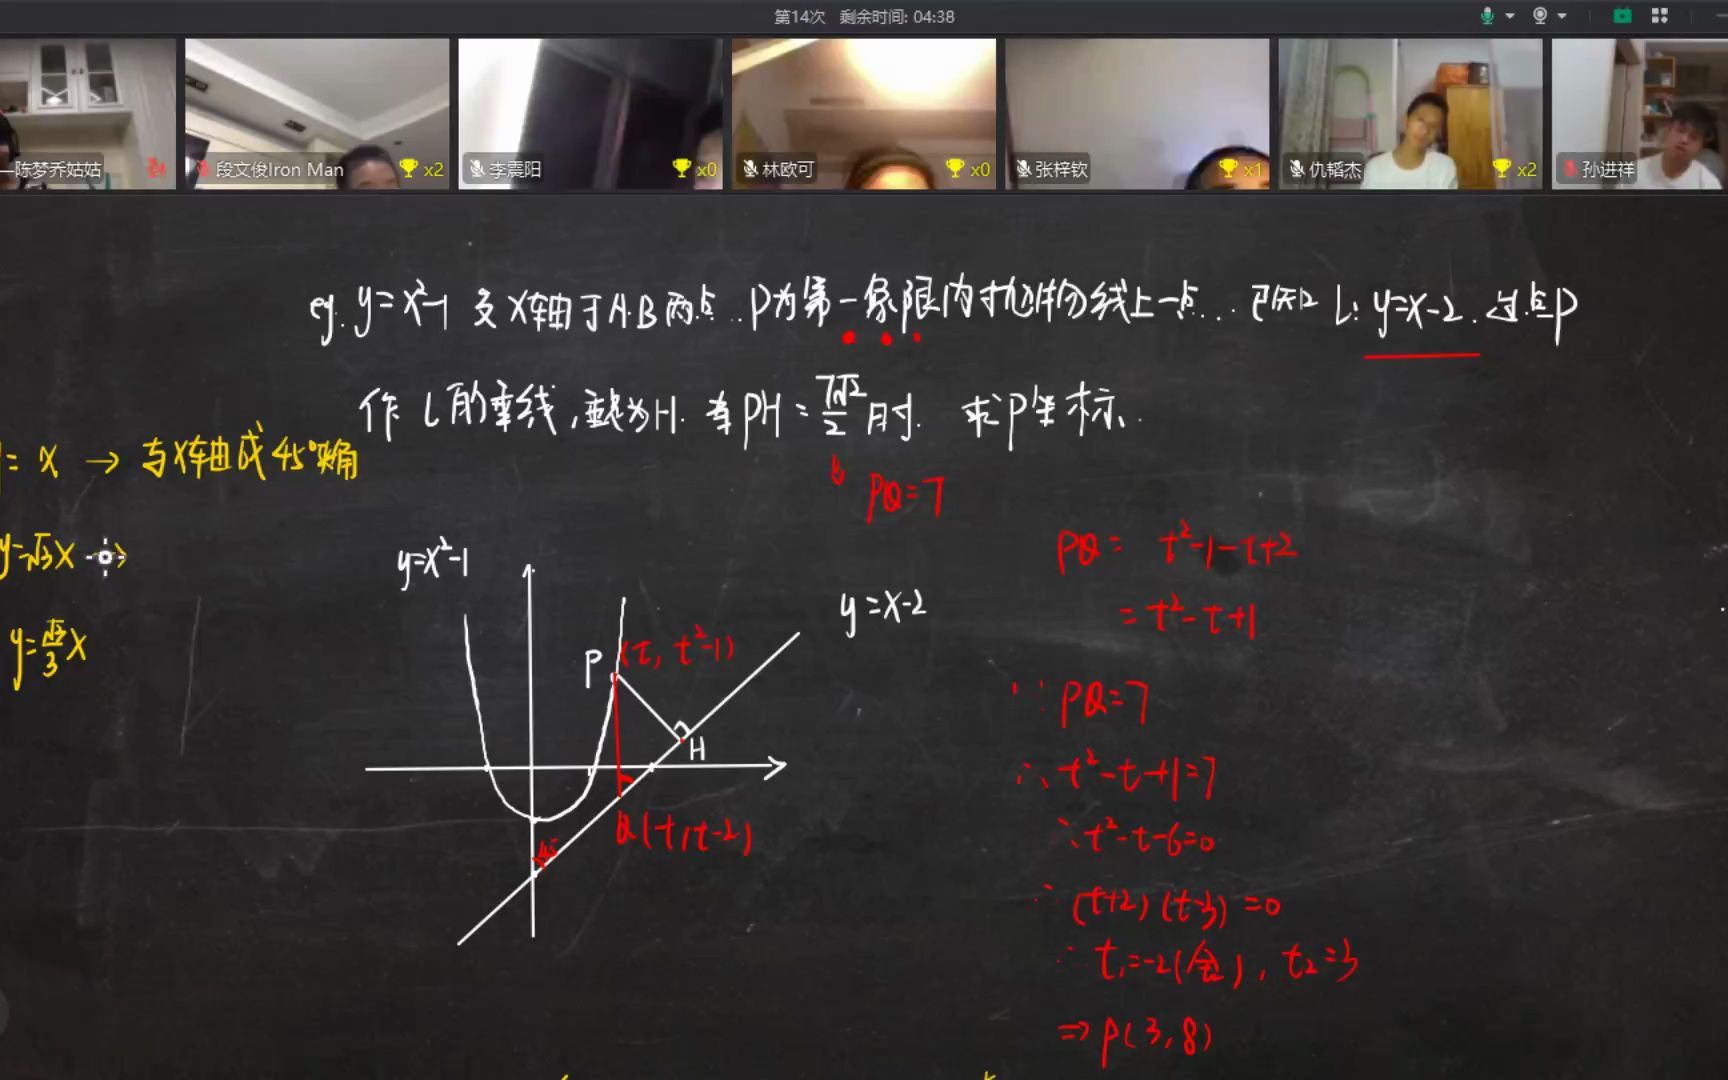 第14次 剩余时间: 04:38
陈梦乔姑姑
段文俊Iron Man x2
李震阳 x0
林欧可 x0
张梓钦 x1
仇韬杰 x2
孙进祥
eg. y=x²-1 交X轴于A.B两点..P为第一象限内抛物线上一点... 已知 L: y=x-2. 过点P
作L的垂线,垂足为H. 当PH=7√2/2时. 求P坐标.
PQ=7
= x → 与X轴成45°夹角
y=√3x →
y=√3/3 x
y=x²-1
y=x-2
P(t, t²-1)
H
Q(t,t-2)
45
PQ= t²-1-t+2
= t²-t+1
∵ PQ=7
∴ t²-t+1=7
∴ t²-t-6=0
∴ (t+2)(t-3)=0
∴ t₁=-2(舍), t₂=3
⇒ P(3,8)